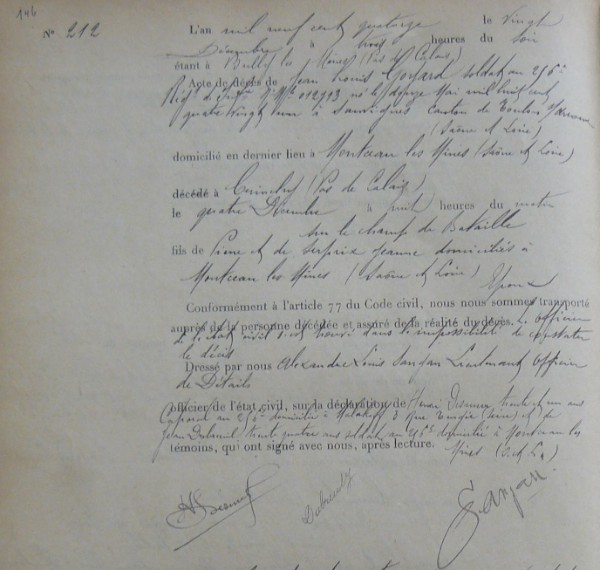 146
N° 212
L'an mil neuf cent quatorze le vingt
Décembre à trois heures du soir
étant à Bully les Mines (Pas de Calais)
Acte de décès de Jean Louis Goyard soldat au 256e
Rigt d'Infie Nº Mle 012913 né le douze Mai mil huit cent
quatre vingt à Sanvignes canton de Toulon s/Arroux
(Saône et Loire)
domicilié en dernier lieu à Montceau les Mines (Saône et Loire)
décédé à Cuinchy (Pas de Calais)
le quatre Décembre à huit heures du matin
sur le champ de Bataille
fils de Pierre et de Jeanne domiciliés à
Montceau les Mines (Saône et Loire)
Epoux
Conformément à l'article 77 du Code civil, nous nous sommes transporté
auprès de la personne décédée et assuré de la réalité du décès. L'officier
de l'état civil s'est trouvé dans l'impossibilité de constater
le décès
Dressé par nous Alexandre Louis Lieutenant Officier
de Détails
officier de l'état civil, sur la déclaration de Henri trente et un ans
Caporal au 256e domicilié à Malakoff 3 Rue (Seine) et de
Jean Dubreuil trente quatre ans soldat au 256e domicilié à Montceau les
témoins, qui ont signé avec nous, après lecture. Mines (S. et L.)